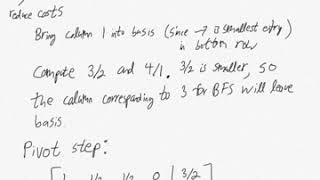 reduce costs
Bring column 1 into basis (since -7 is smallest entry)
in bottom row
Compute 3/2 and 4/1. 3/2 is smaller, so
the column corresponding to 3 for BFS will leave
basis.
Pivot step:
1 1/2 1/2 0 | 3/2